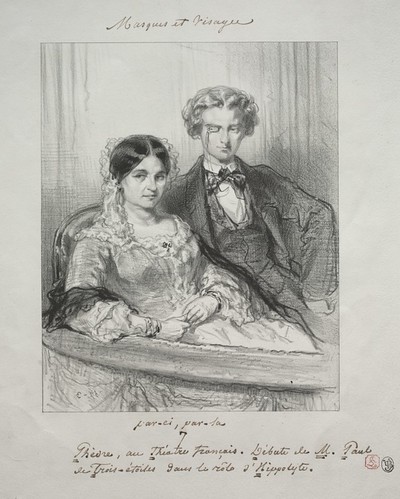 Masques et Visages
par-ci, par-là
7
Phèdre, au Théâtre Français. Débute de M. Paul
de Trois-étoiles dans le rôle d'Hippolyte.